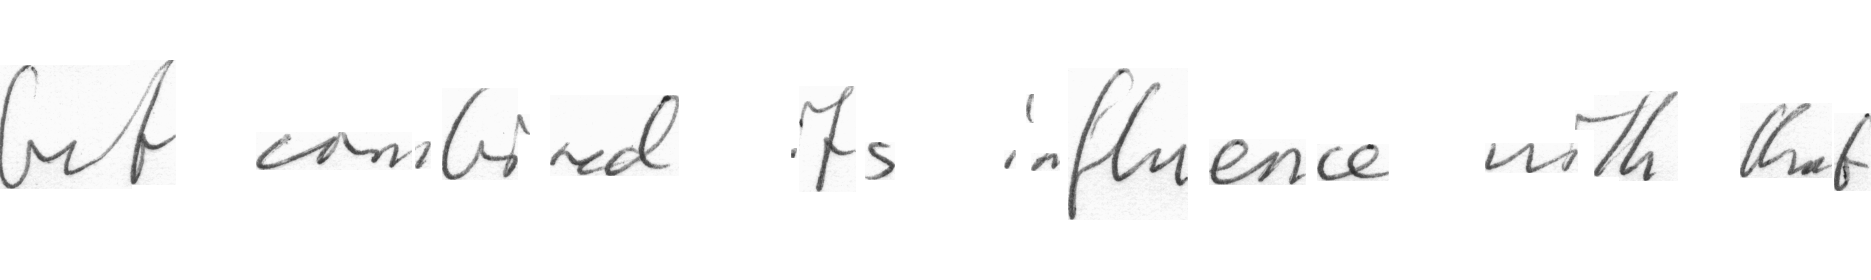 but combined its influence with that